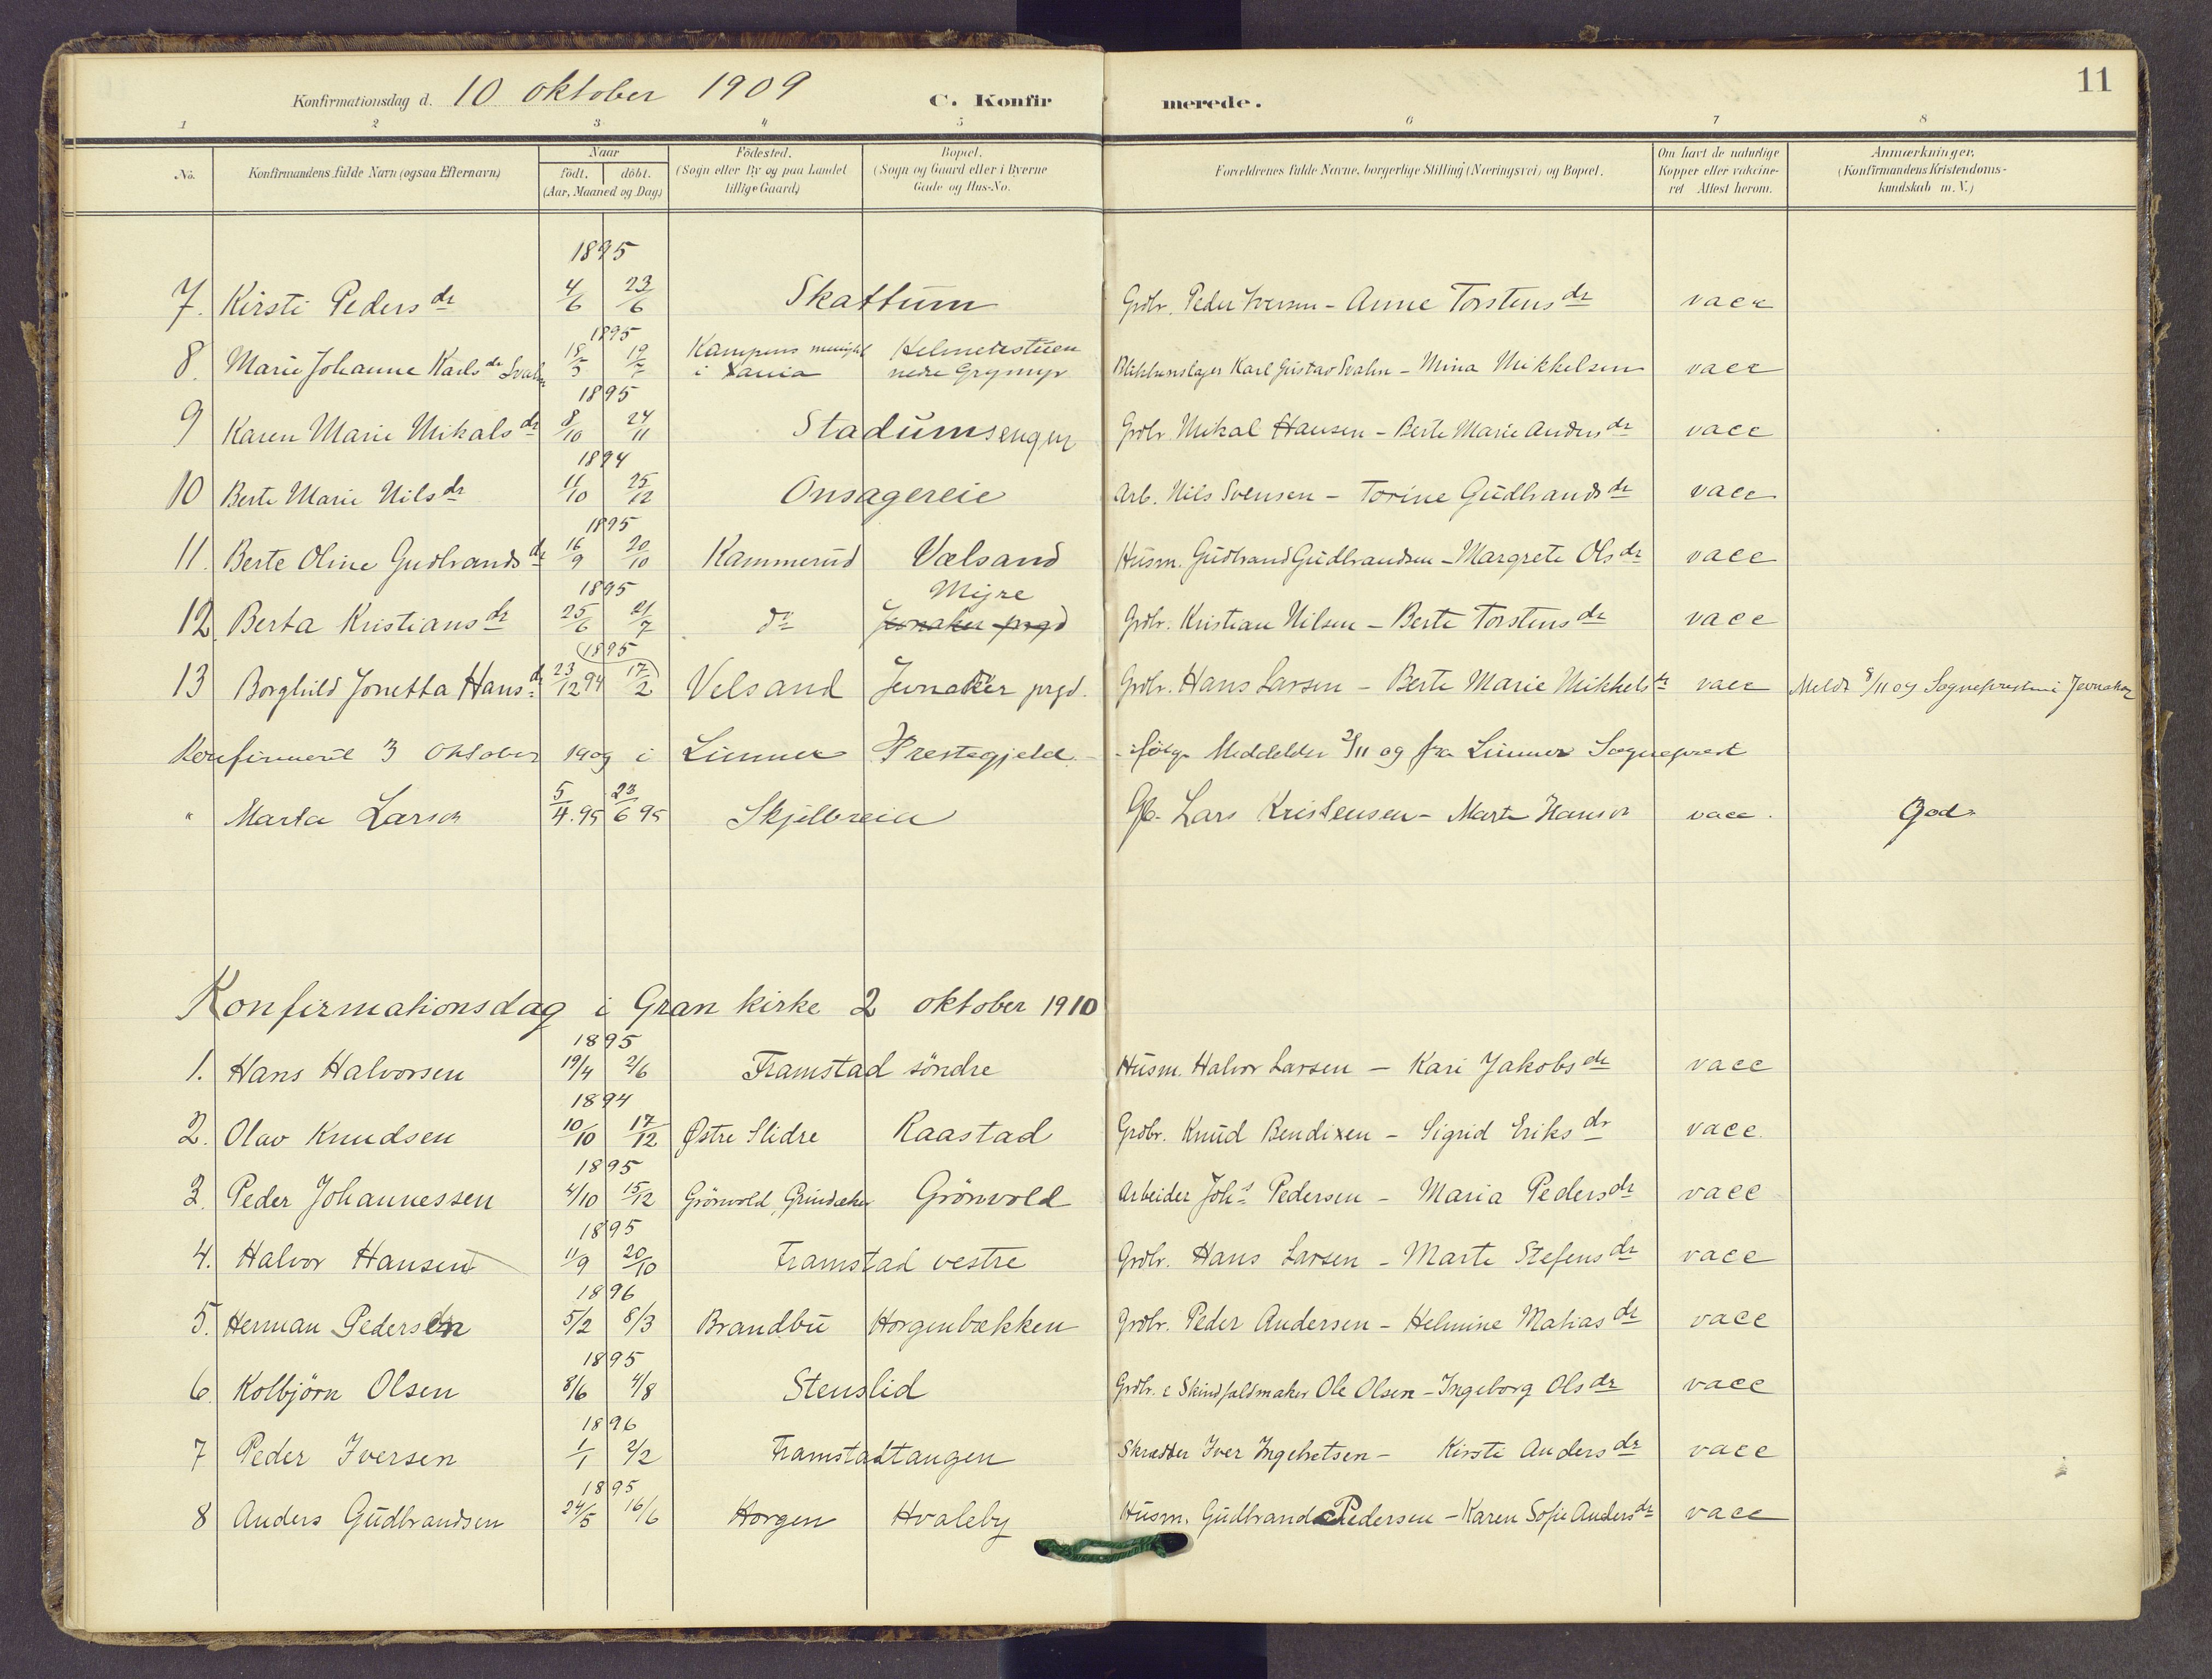 11
Konfirmationsdag d. 10 oktober 1909 C. Konfirmerede.
1 2 3 4 5 6 7 8
No. Konfirmandens fulde Navn (ogsaa Efternavn) Naar født. døbt. (Aar, Maaned og Dag) Fødested. (Sogn eller By og paa Landet tillige Gaard) Bopæl. (Sogn og Gaard eller i Byerne Gade og Hus-No. Forældrenes fulde Navne, borgerlige Stilling (Næringsvei) og Bopæl. Om havt de naturlige Kopper eller vakcineret Attest herom. Anmærkninger. (Konfirmandens Kristendomskundskab m.V.)
1895
7. Kirsti Pedersdr 4/6 23/6 Skattum Grdbr. Peder Iversen - Anne Torstensdr vacc
1895
8. Marie Johanne Karlsdr Svahn Kampens menight i Xania Helmeistuen nedre Grymyr Blikkenslager Karl Gustav Svahn - Mina Mikkelsen vacc
1895
9 Karen Marie Mikalsdr 8/10 24/11 Stadumsengen Grdbr Mikal Hansen - Berte Marie Andersdr vacc
1894
10 Berte Marie Nilsdr 11/10 25/12 Onsagereie Arb. Nils Svensen - Torine Gudbrandsdr vacc
1895
11. Berte Oline Gudbrandsdr 16/9 20/10 Kammerud Vælsand Husm. Gudbrand Gudbrandsen - Margrete Olsdr vacc
1895 Mijre
12 Berta Kristiansdr 25/6 21/7 do Jevnaker prgd Grdbr. Kristian Nilsen - Berte Torstensdr vacc
1895
13 Borghild Jonetta Hansdr 23/12 94 17/2 Velsand Jevnaker prgd. Grdbr. Hans Larsen - Berte Marie Mikkelsdr vacc Meldt 8/11 09 Sognepresten i Jevnaker
Konfirmeret 3 Oktober 1909 i Lunner Prestegjeld - ifølge Meddelelse 3/11 09 fra Lunner Sogneprest
" Marta Larsdr 5/4.95 23/6 95 Skjelbreia Gb. Lars Kristensen - Marte Hansdr vacc. God
Konfirmationsdag i Gran kirke 2 oktober 1910
1895
1. Hans Halvorsen 19/4 2/6 Framstad söndre Husm. Halvor Larsen - Kari Jakobsdr vacc
1894
2. Olav Knudsen 10/10 17/12 Østre Slidre Raastad Grdbr. Knud Bendixen - Sigrid Eriksdr vacc
1895
3. Peder Johannessen 4/10 15/12 Grönvold, Grindaker Grönvold Arbeider Johs Pedersen - Maria Pedersdr vacc
1895
4. Halvor Hansen 11/9 20/10 Framstad vestre Grdbr. Hans Larsen - Marte Stefensdr vacc
1896
5. Herman Pedersen 5/2 8/3 Brandbu Horgenbækken Grdbr. Peder Andersen - Helmine Matiasdr vacc
1895
6. Kolbjörn Olsen 8/6 4/8 Stenslid Grdbr. & Skindfældmaker Ole Olsen - Ingeborg Olsdr vacc
1896
7 Peder Iversen 1/1 2/2 Framstadtangen Skrædder Iver Ingebretsen - Kirsti Andersdr vacc
1895
8 Anders Gudbrandsen 24/5 16/6 Horgen Hvaleby Husm. Gudbrand Pedersen - Karen Sofie Andersdr vacc